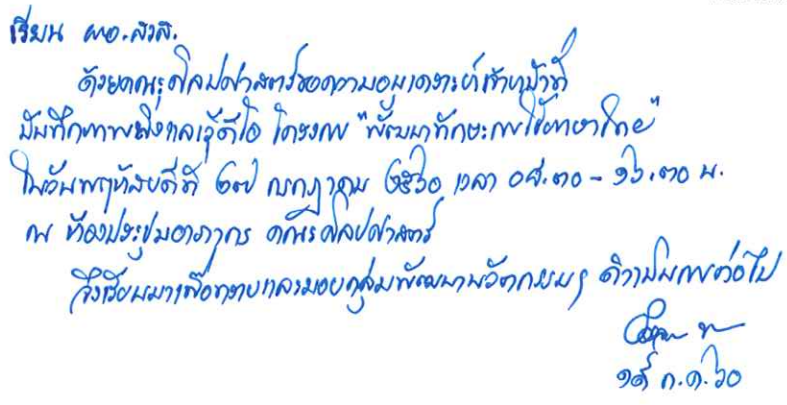 เรียน ผอ.สวส.
ด้วยคณะศิลปศาสตร์ขอความอนุเคราะห์เจ้าหน้าที่
บันทึกภาพนิ่งและวีดีโอ โครงการ "พัฒนาทักษะการใช้ภาษาไทย"
ในวันพฤหัสบดีที่ ๒๗ กรกฎาคม ๒๕๖๐ เวลา ๐๘.๓๐ - ๑๖.๓๐ น.
ณ ห้องประชุมอาภากร คณะศิลปศาสตร์
จึงเรียนมาเพื่อทราบและมอบกลุ่มพัฒนานวัตกรรมฯ ดำเนินการต่อไป
๑๙ ก.ค. ๖๐